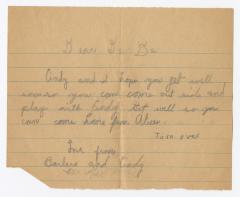 Dear
Andy and I hope you get well
so you can come out side and
play with Andy Get well so you
can come home from
Turn over
from
Barbara and Andy